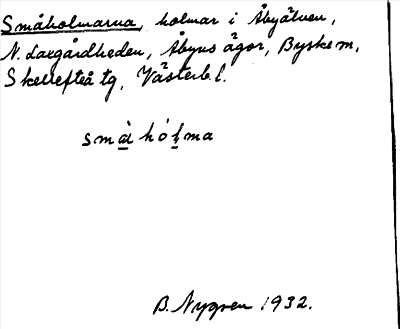 Småholmarna, holmar i Åbyälven,
N. Laxgårdheden, Åbyns ägor, Byske m,
Skellefteå tg, Västerb l.
små hó̀lma
B. Nygren 1932.